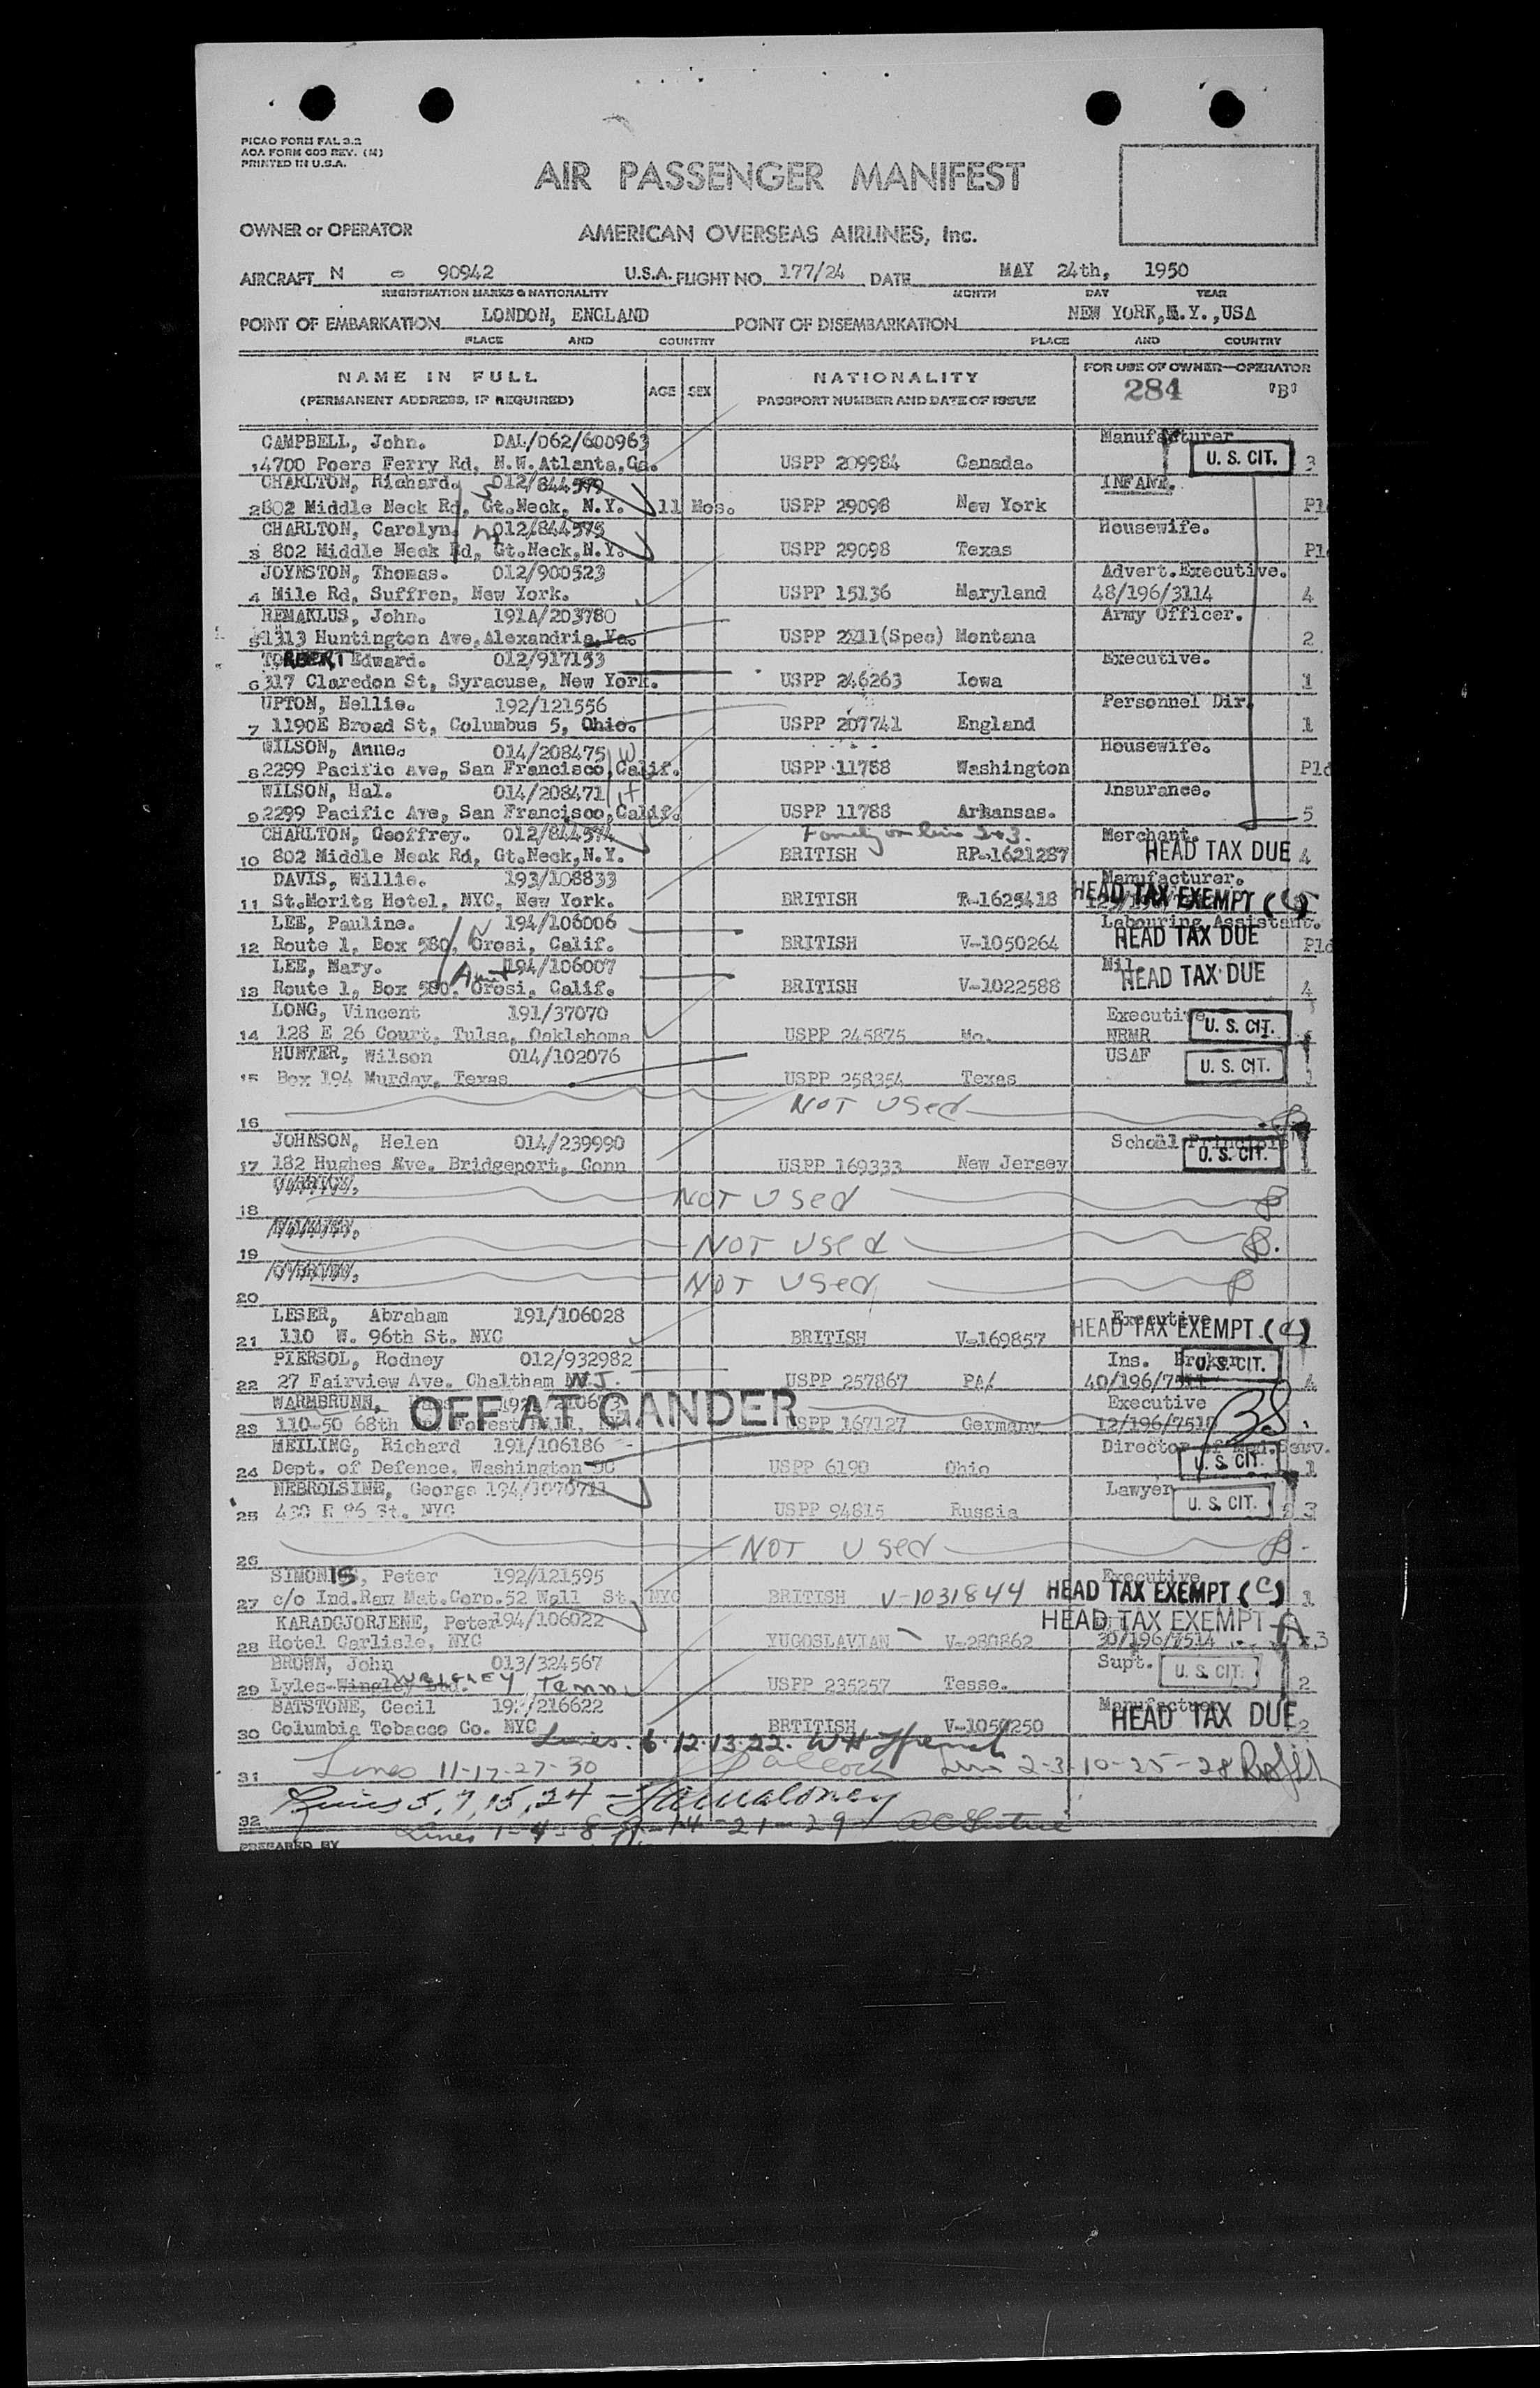 PICAO FORM FAL 3.2
AOA FORM 603 REV. (M)
PRINTED IN U.S.A.
AIR PASSENGER MANIFEST
OWNER or OPERATOR AMERICAN OVERSEAS AIRLINES, Inc.
AIRCRAFT N - 90942 U.S.A. FLIGHT NO. 177/24 DATE MAY 24th, 1950
REGISTRATION MARKS & NATIONALITY MONTH DAY YEAR
POINT OF EMBARKATION LONDON, ENGLAND POINT OF DISEMBARKATION NEW YORK, N.Y., USA
PLACE AND COUNTRY PLACE AND COUNTRY
NAME IN FULL AGE SEX NATIONALITY FOR USE OF OWNER-OPERATOR
(PERMANENT ADDRESS, IF REQUIRED) PASSPORT NUMBER AND DATE OF ISSUE 284 "B"
CAMPBELL, John. DAL/062/600963 Manufacturer
1 4700 Poers Ferry Rd, N.W. Atlanta, Ga. USPP 209984 Canada. U. S. CIT. 3
CHARLTON, Richard. 012/844579 INFANT.
2 802 Middle Neck Rd, Gt.Neck, N.Y. 11 Mos. USPP 29098 New York
CHARLTON, Carolyn. 012/844575 Housewife.
3 802 Middle Neck Rd, Gt.Neck, N.Y. USPP 29098 Texas
JOYNSTON, Thomas. 012/900523 Advert.Executive.
4 Mile Rd, Suffren, New York. USPP 15136 Maryland 48/196/3114 4
REMAKLUS, John. 191A/203780 Army Officer.
5 1313 Huntington Ave, Alexandria, Va. USPP 2211(Spec) Montana 2
TORBERT Edward. 012/917153 Executive.
6 317 Claredon St, Syracuse, New York. USPP 246263 Iowa 1
UPTON, Nellie. 192/121556 Personnel Dir.
7 1190E Broad St, Columbus 5, Ohio. USPP 207741 England 1
WILSON, Anne. 014/208475 W Housewife.
8 2299 Pacific Ave, San Francisco, Calif. USPP 11788 Washington
WILSON, Hal. 014/208471 H Insurance.
9 2299 Pacific Ave, San Francisco, Calif. USPP 11788 Arkansas. 5
CHARLTON, Geoffrey. 012/844574 Family on line 2+3. Merchant.
10 802 Middle Neck Rd, Gt.Neck, N.Y. BRITISH RP-1621287 HEAD TAX DUE 4
DAVIS, Willie. 193/108833 Manufacturer.
11 St.Morits Hotel, NYC, New York. BRITISH R-1625418 HEAD TAX EXEMPT (C)
LEE, Pauline. 194/106006 Labouring Assistant.
12 Route 1, Box 580, Orosi, Calif. BRITISH V-1050264 HEAD TAX DUE
LEE, Mary. 194/106007 Nil.
13 Route 1, Box 580, Aunt Orosi, Calif. BRITISH V-1022588 HEAD TAX DUE 4
LONG, Vincent 191/37070 Executive
14 128 E 26 Court, Tulsa, Oaklahoma USPP 245875 Mo. NRMR U. S. CIT.
HUNTER, Wilson 014/102076 USAF
15 Box 194 Murday, Texas USPP 258354 Texas U. S. CIT.
16 NOT USED
JOHNSON, Helen 014/239990 School Principle
17 182 Hughes Ave. Bridgeport, Conn USPP 169333 New Jersey U. S. CIT. 1
18 NOT USED
19 NOT USED
20 NOT USED
LESER, Abraham 191/106028 Executive
21 110 W. 96th St. NYC BRITISH V-169857 HEAD TAX EXEMPT (C)
PIERSOL, Rodney 012/932982 Ins. Broker U. S. CIT.
22 27 Fairview Ave. Chaltham N.J. USPP 257867 PA/ 40/196/ 4
WARMBRUNN, OFF AT GANDER Executive
23 110-50 68th Forest USPP 167127 Germany 12/196/7510
MEILING, Richard 191/106186 Director of Med.Serv.
24 Dept. of Defence, Washington DC USPP 6190 Ohio U. S. CIT. 1
NEBROLSINE, George 194/1070711 Lawyer
25 430 E 86 St. NYC USPP 94815 Russia U. S. CIT. 3
26 NOT USED
SIMONIS, Peter 192/121595 Executive
27 c/o Ind.Raw Mat.Corp. 52 Wall St. NYC BRITISH V-1031844 HEAD TAX EXEMPT (C) 1
KARADGJORJENE, Peter 194/106022 HEAD TAX EXEMPT A
28 Hotel Carlisle, NYC YUGOSLAVIAN V-280862 30/196/7514 3
BROWN, John 013/324567 Supt.
29 Lyles-Wingley Ltd. WRIGLEY Tenn. USPP 235257 Tesse. U. S. CIT. 2
BATSTONE, Cecil 192/216622 Manufacturer
30 Columbia Tobacco Co. NYC BRTITISH V-1050250 HEAD TAX DUE 2
Lines. 6. 12. 13. 22. WH French
31 Lines 11-17-27-30 Lines 2-3-10-25-28
32 Lines 5, 7, 15, 24
Lines 1-4-8-9-14-21-29
PREPARED BY